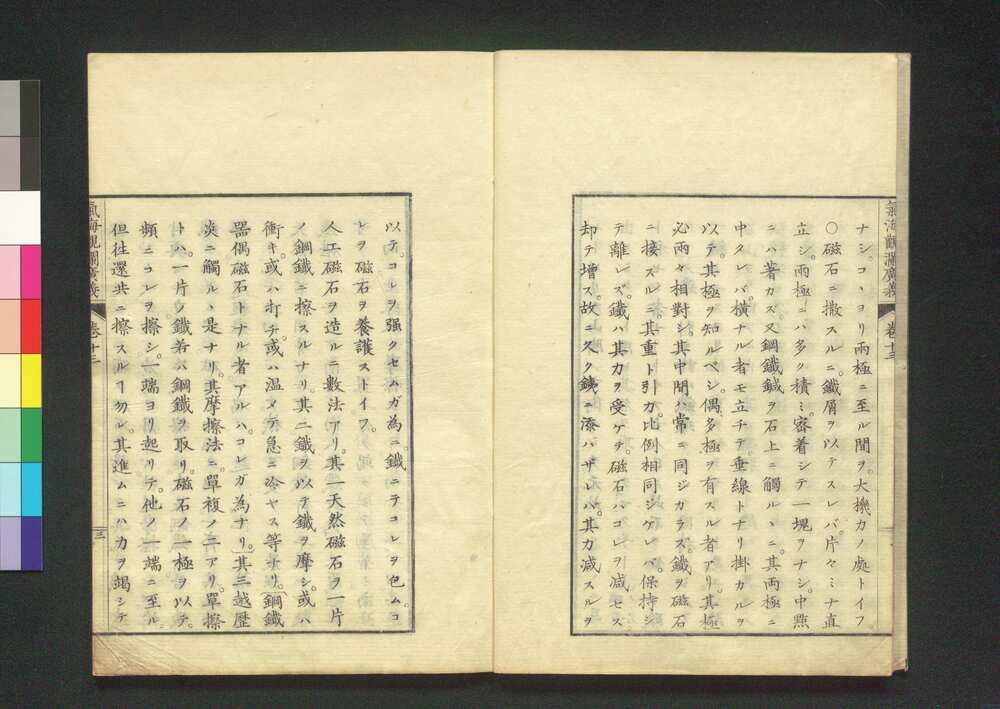 氣海觀瀾廣義
卷十三
ナシ。コヽヨリ兩極ニ至ル間ヲ。大機力ノ處トイフ。
〇磁石ニ撒スルニ。鐵屑ヲ以テスレバ。片々ミナ直
立シ。兩極ニハ多ク積ミ。密着シテ一塊ヲナシ。中㸃
ニハ著カズ。又鋼鐵鍼ヲ石上ニ觸ルヽニ。其兩極ニ
中タレバ。橫ナル者モ立チテ。垂線トナリ掛カルヲ
以テ。其極ヲ知ルベシ。偶多極ヲ有スル者アリ。其極
必兩々相對シ。其中間ハ常ニ同ジカラズ。鐵ヲ磁石
ニ接スルニ。其重ト引力。比例相同ジケレバ。保持シ
テ離レズ。鐵ハ其力ヲ受ケテ。磁石ハコレヲ減セス
却テ增ス。故ニ久ク鐵ニ添ハザレバ。其力減スルヲ
以テ。コレヲ强クセムガ為ニ。鐵ニテコレヲ包ム。コ
トヲ磁石ヲ養護ストイフ。
人工磁石ヲ造ルニ數法アリ。其一天然磁石ヲ一片
ノ鋼鐵ニ擦スルナリ。其二鐵ヲ以テ鐵ヲ摩シ。或ハ
衝キ。或ハ打チ。或ハ温メテ急ニ冷ヤス等ナリ。鋼鐵
器偶磁石トナル者アルハ。コレガ為ナリ。其三越歷
炎ニ觸ルヽ是ナリ。其摩擦法ニ。單複ノ二アリ。單擦
トハ。一片ノ鐵若ハ鋼鐵ヲ取リ。磁石ノ一極ヲ以テ。
頻ニコレヲ擦シ。一端ヨリ起リテ。他ノ一端ニ至ル。
但往還共ニ擦スルヿ勿レ。其進ムニハ力ヲ竭シテ
氣海觀瀾廣義
卷十三
三